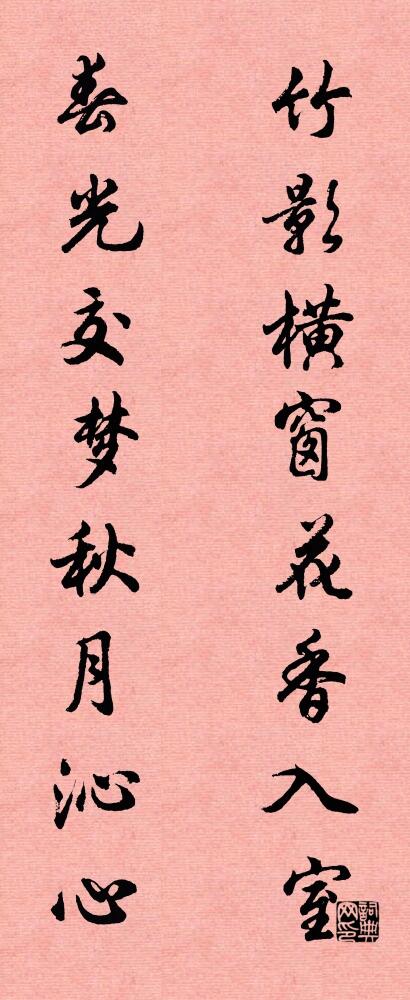 竹影横窗花香入室
春光交梦秋月沁心
詞典网印